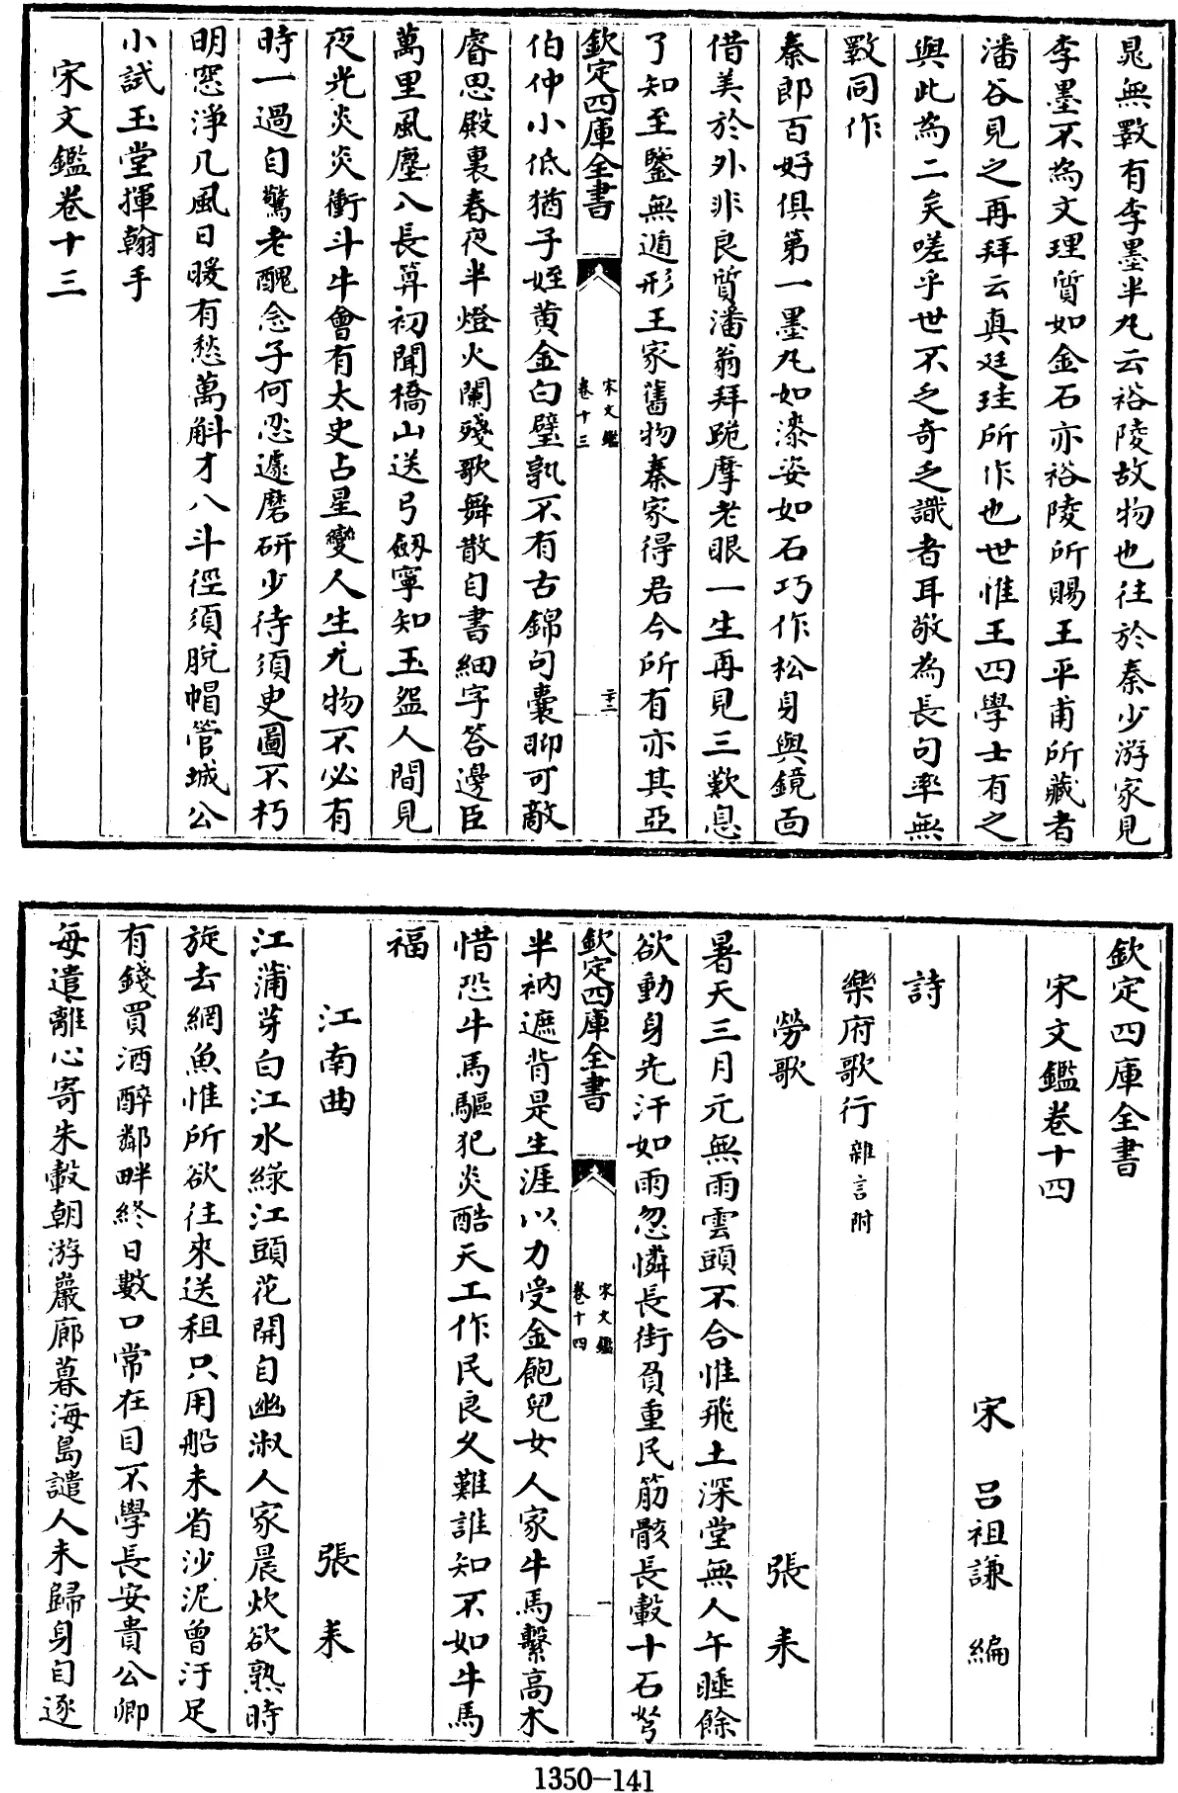 晁無斁有李墨半丸云裕陵故物也往於秦少游家見
李墨不為文理質如金石亦裕陵所賜王平甫所藏者
潘谷見之再拜云真廷珪所作也世惟王四學士有之
與此為二矣嗟乎世不乏奇乏識者耳敬為長句率無
斁同作
秦郎百好俱第一墨丸如漆姿如石巧作松身與鏡面
借美於外非良質潘翁拜跪摩老眼一生再見三歎息
了知至鑒無遁形王家舊物秦家得君今所有亦其亞
欽定四庫全書
宋文鑑
卷十三
二十二
伯仲小低猶子姪黄金白璧孰不有古錦句囊聊可敵
睿思殿裏春夜半燈火闌殘歌舞散自書細字答邊臣
萬里風塵入長筭初聞橋山送弓劒寧知玉盌人間見
夜光炎炎衝斗牛會有太史占星變人生尤物不必有
時一過目驚老醜念子何忍遽磨研少待須臾圖不朽
明窓淨几風日暖有愁萬斛才八斗徑須脫帽管城公
小試玉堂揮翰手
宋文鑑卷十三
欽定四庫全書
宋文鑑卷十四
宋 呂祖謙 編
詩
樂府歌行 雜言附
勞歌 張耒
暑天三月元無雨雲頭不合惟飛土深堂無人午睡餘
欲動身先汗如雨忽憐長街負重民筋骸長轂十石弩
欽定四庫全書
宋文鑑
卷十四
一
半衲遮背是生涯以力受金飽兒女人家牛馬繫高木
惜恐牛馬驅犯炎酷天工作民良久難誰知不如牛馬
福
江南曲 張耒
江蒲芽白江水綠江頭花開自幽淑人家晨炊欲熟時
旋去網魚惟所欲往來送租只用船未省沙泥曾汙足
有錢買酒醉鄰畔終日數口常在目不學長安貴公卿
每遣離心寄朱轂朝游巖廊暮海島譴人未歸身自逐
1350-141